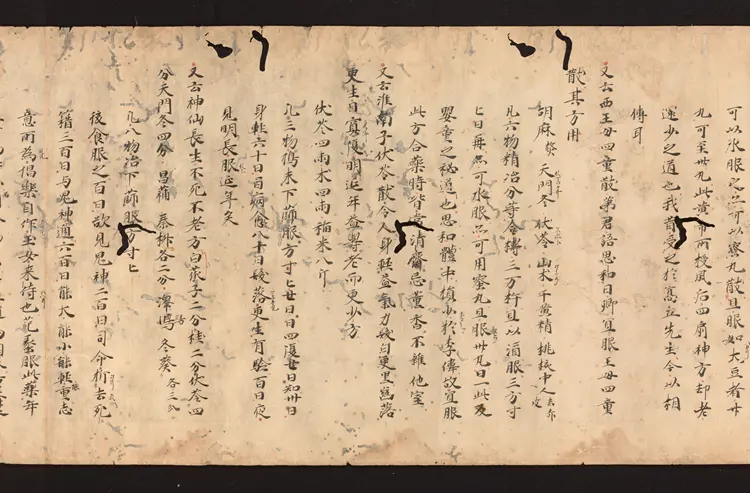 可以水服之亦可以蜜丸散旦服如大豆者廿
丸可至卅九此黄帝所授風后四扇神方却老
還少之道也我昔受之於高丘先生今以相
傳耳
又云西王母四童散第君語思和曰卿宜服王母四童
散其方用
胡麻熬 天門冬 伏苓 山术 干黄精 桃核中人去赤皮
凡六物精冶分等合擣三万杵旦以酒服三方寸
匕日再亦可水服亦可用蜜丸旦服卅丸日一此反
嬰童之秘道也思和體中損少於李偉故宜服
此方合藥時皆當清齋忌薫香不雜他室
又云淮南子伏苓散令人身輕益氣力髮白更黒齒落
更生目冥復明延年益壽老而更少方
伏苓四兩水四兩稲米八斤
凡三物擣末下篩服方寸匕廿日日四復廿日知卅日
身軽六十日百病愈八十日髮落更生有驗百日夜
見明長服延年矣
又云神仙長生不死不老方 白菽子二分桂二分伏苓四
分天門冬四分 昌蒲 秦椒各二分 澤舄 冬葵各三分
凡八物冶下篩服方寸匕
後食服之百日欲見鬼神二百日司命折去死
籍三百日与鬼神通六百日能大能小能軽重志
意所為倡樂自作玉女来侍也 服此藥年